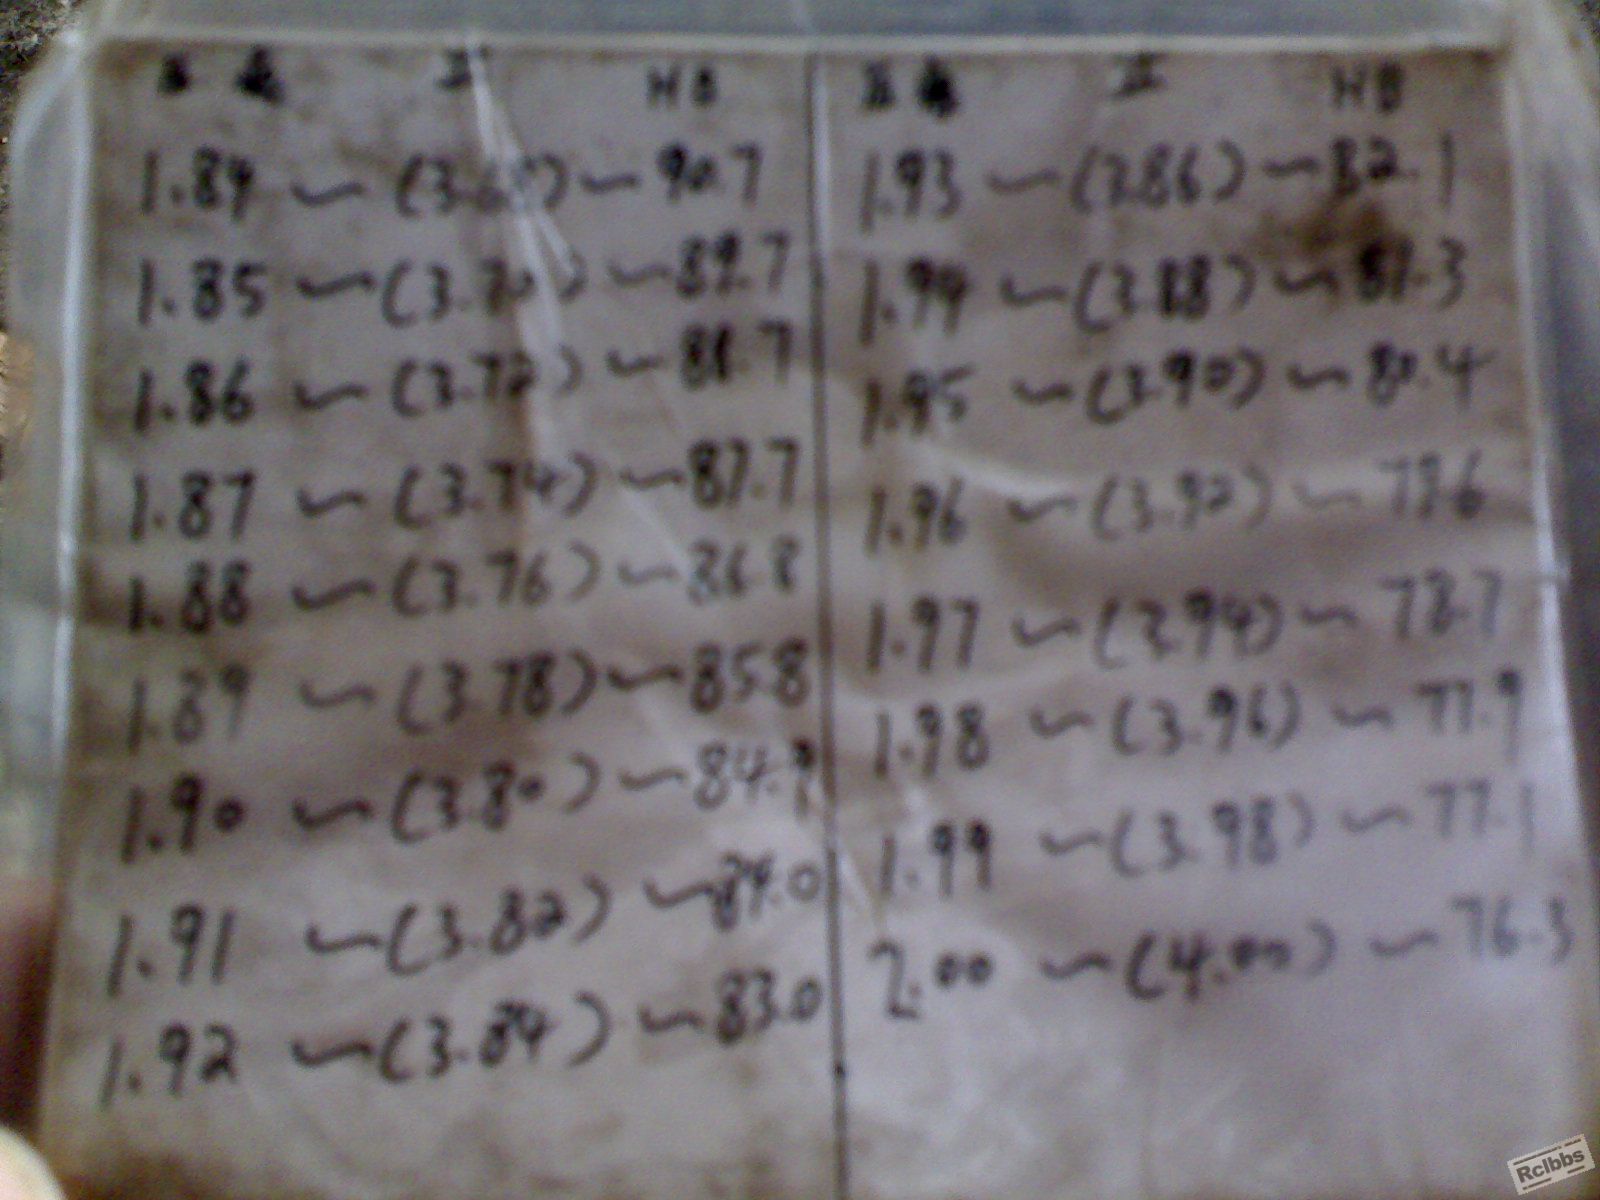 HB
1.84 ~ (3.68) ~ 90.7
1.85 ~ (3.70) ~ 89.7
1.86 ~ (3.72) ~ 88.7
1.87 ~ (3.74) ~ 87.7
1.88 ~ (3.76) ~ 86.8
1.89 ~ (3.78) ~ 85.8
1.90 ~ (3.80) ~ 84.9
1.91 ~ (3.82) ~ 84.0
1.92 ~ (3.84) ~ 83.0
HB
1.93 ~ (3.86) ~ 82.1
1.94 ~ (3.88) ~ 81.3
1.95 ~ (3.90) ~ 80.4
1.96 ~ (3.92) ~ 79.6
1.97 ~ (3.94) ~ 78.7
1.98 ~ (3.96) ~ 77.9
1.99 ~ (3.98) ~ 77.1
2.00 ~ (4.00) ~ 76.3
Rclbbs